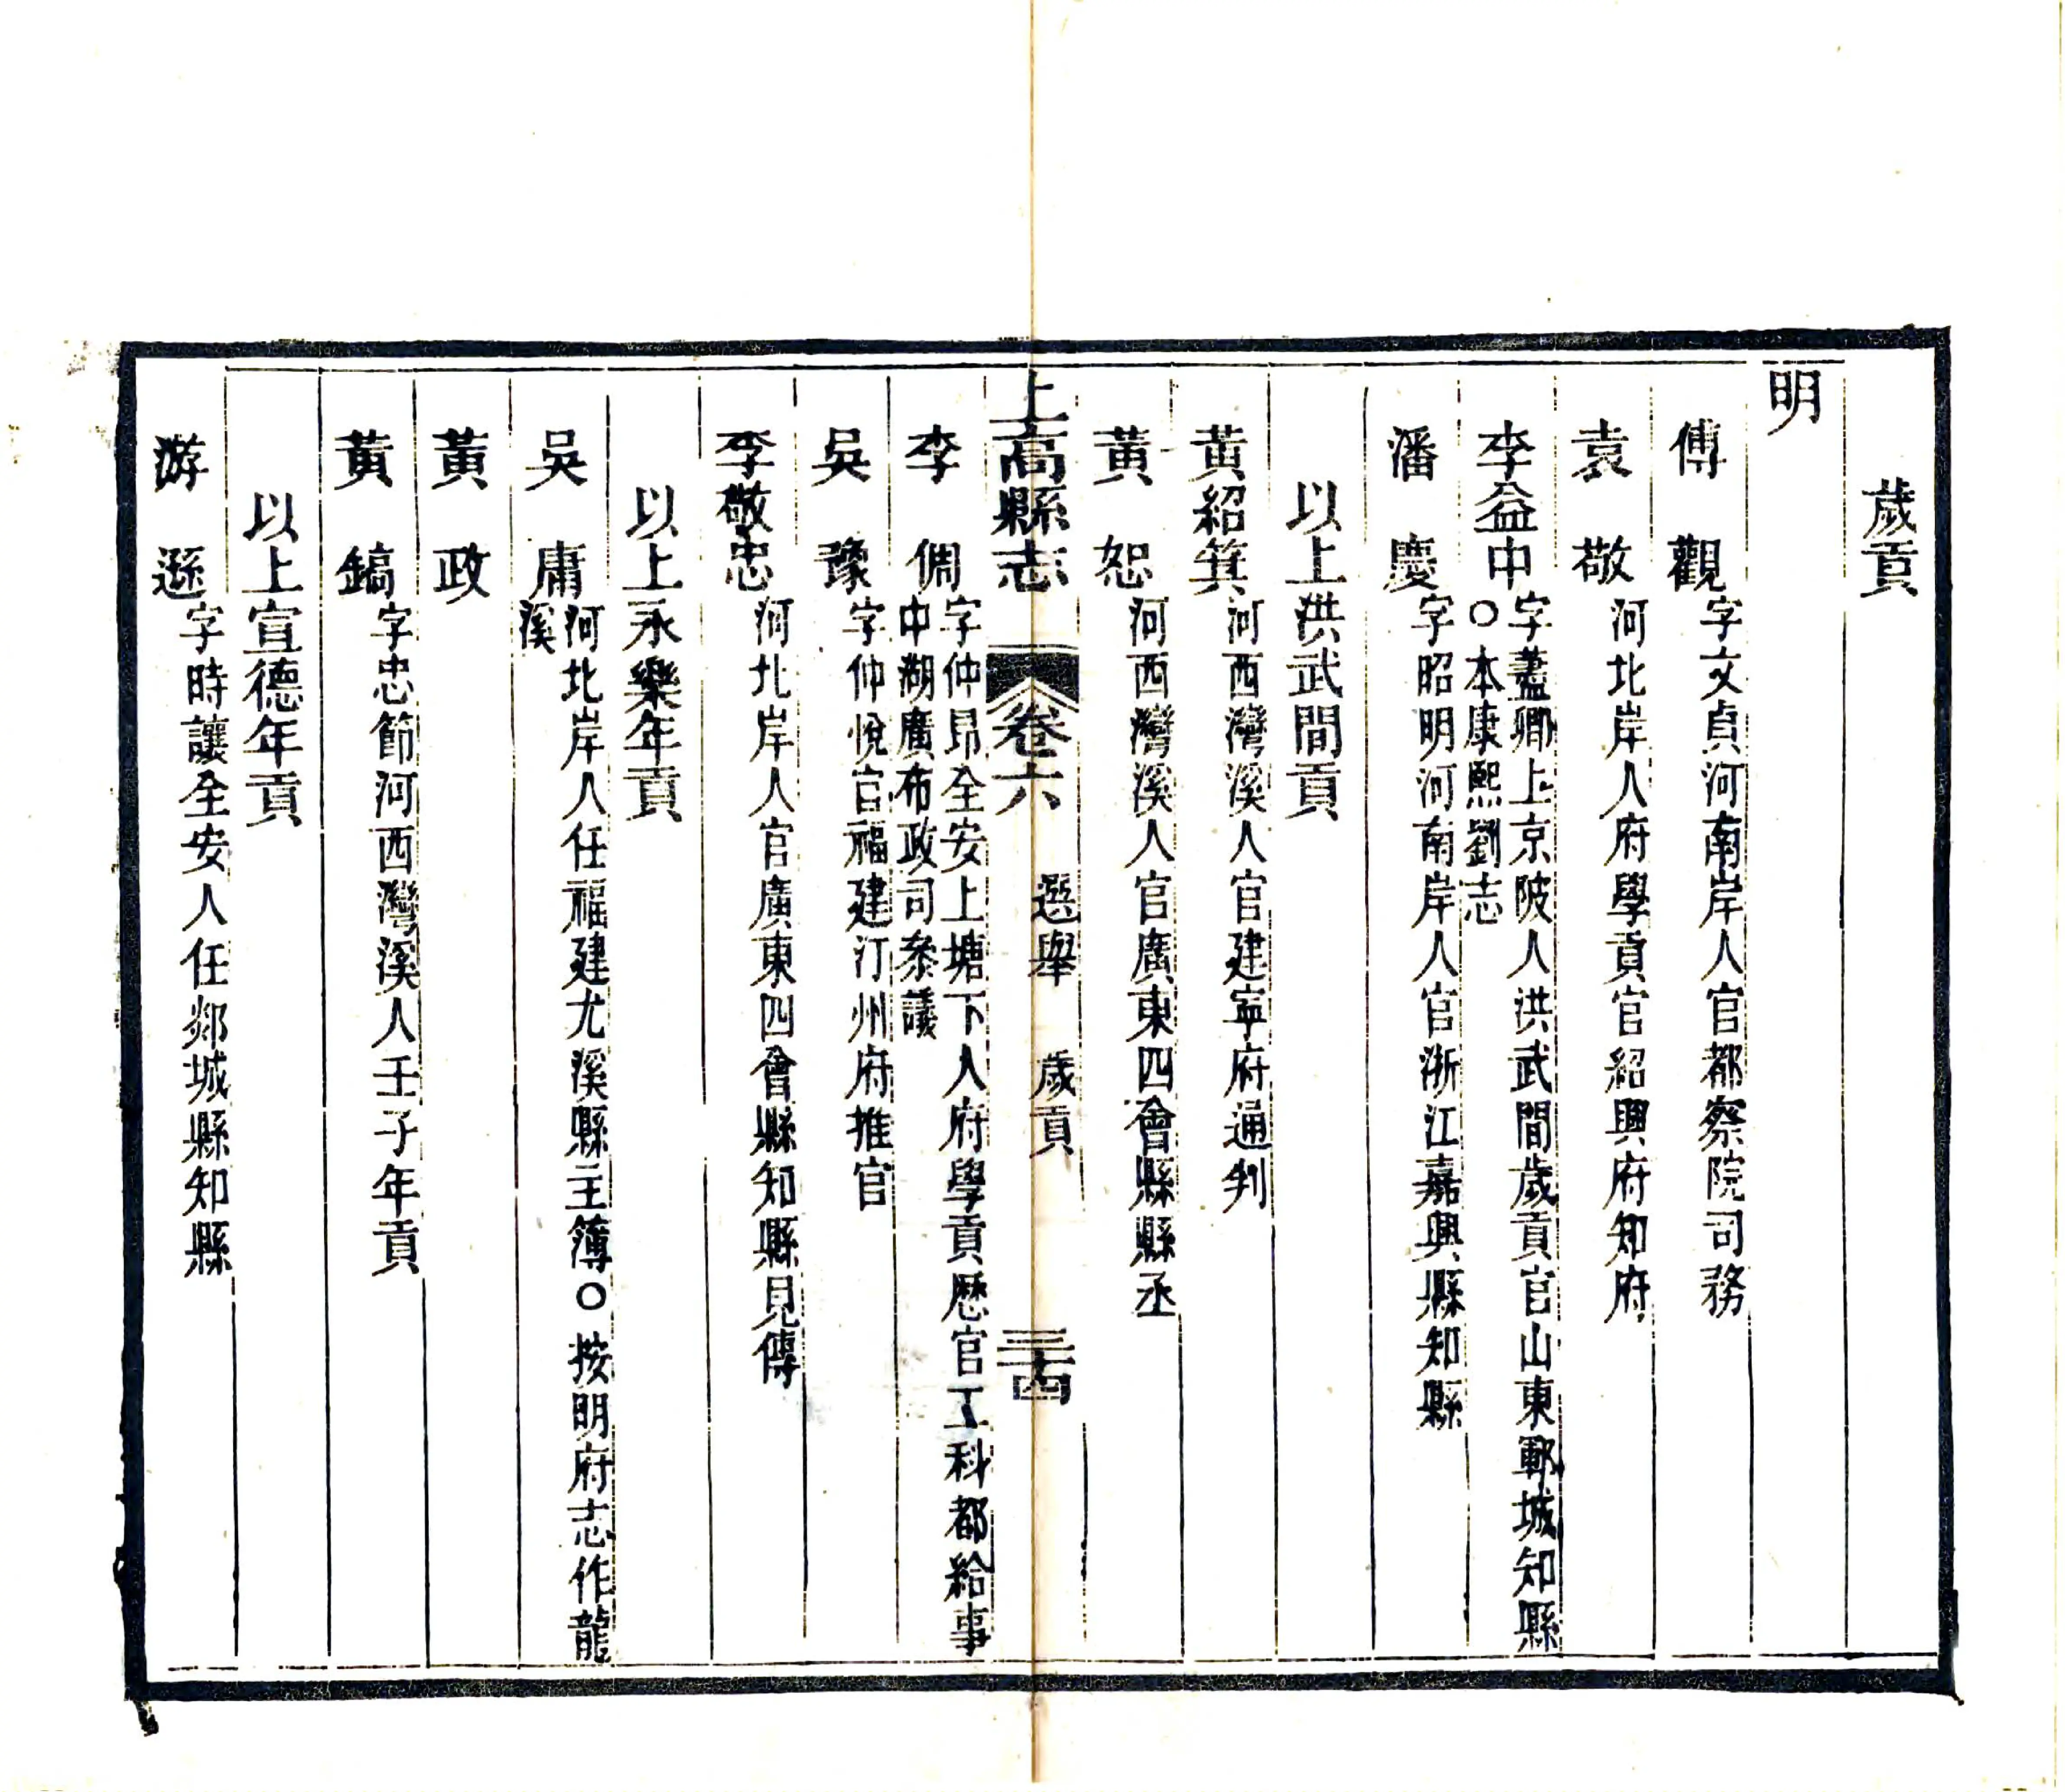 歲貢
明
傅觀字文貞河南岸人官都察院司務
袁敬河北岸人府學貢官紹興府知府
李益中字藎卿上京陂人洪武間歲貢官山東鄆城知縣
○本康熙劉志
潘慶字昭明河南岸人官浙江嘉興縣知縣
以上洪武間貢
黃紹箕河西灣溪人官建寧府通判
黃恕河西灣溪人官廣東四會縣縣丞
上高縣志 卷六 選舉 歲貢 三十四
李倜字仲昂全安上塘下人府學貢歷官工科都給事
中湖廣布政司叅議
吳豫字仲悅官福建汀州府推官
李敬忠河北岸人官廣東四會縣知縣見傳
以上永樂年貢
吳庸河北岸人任福建尤溪縣主簿○按明府志作龍
溪
黃政
黃鎬字忠節河西灣溪人壬子年貢
以上宣德年貢
游遜字時讓全安人任郯城縣知縣